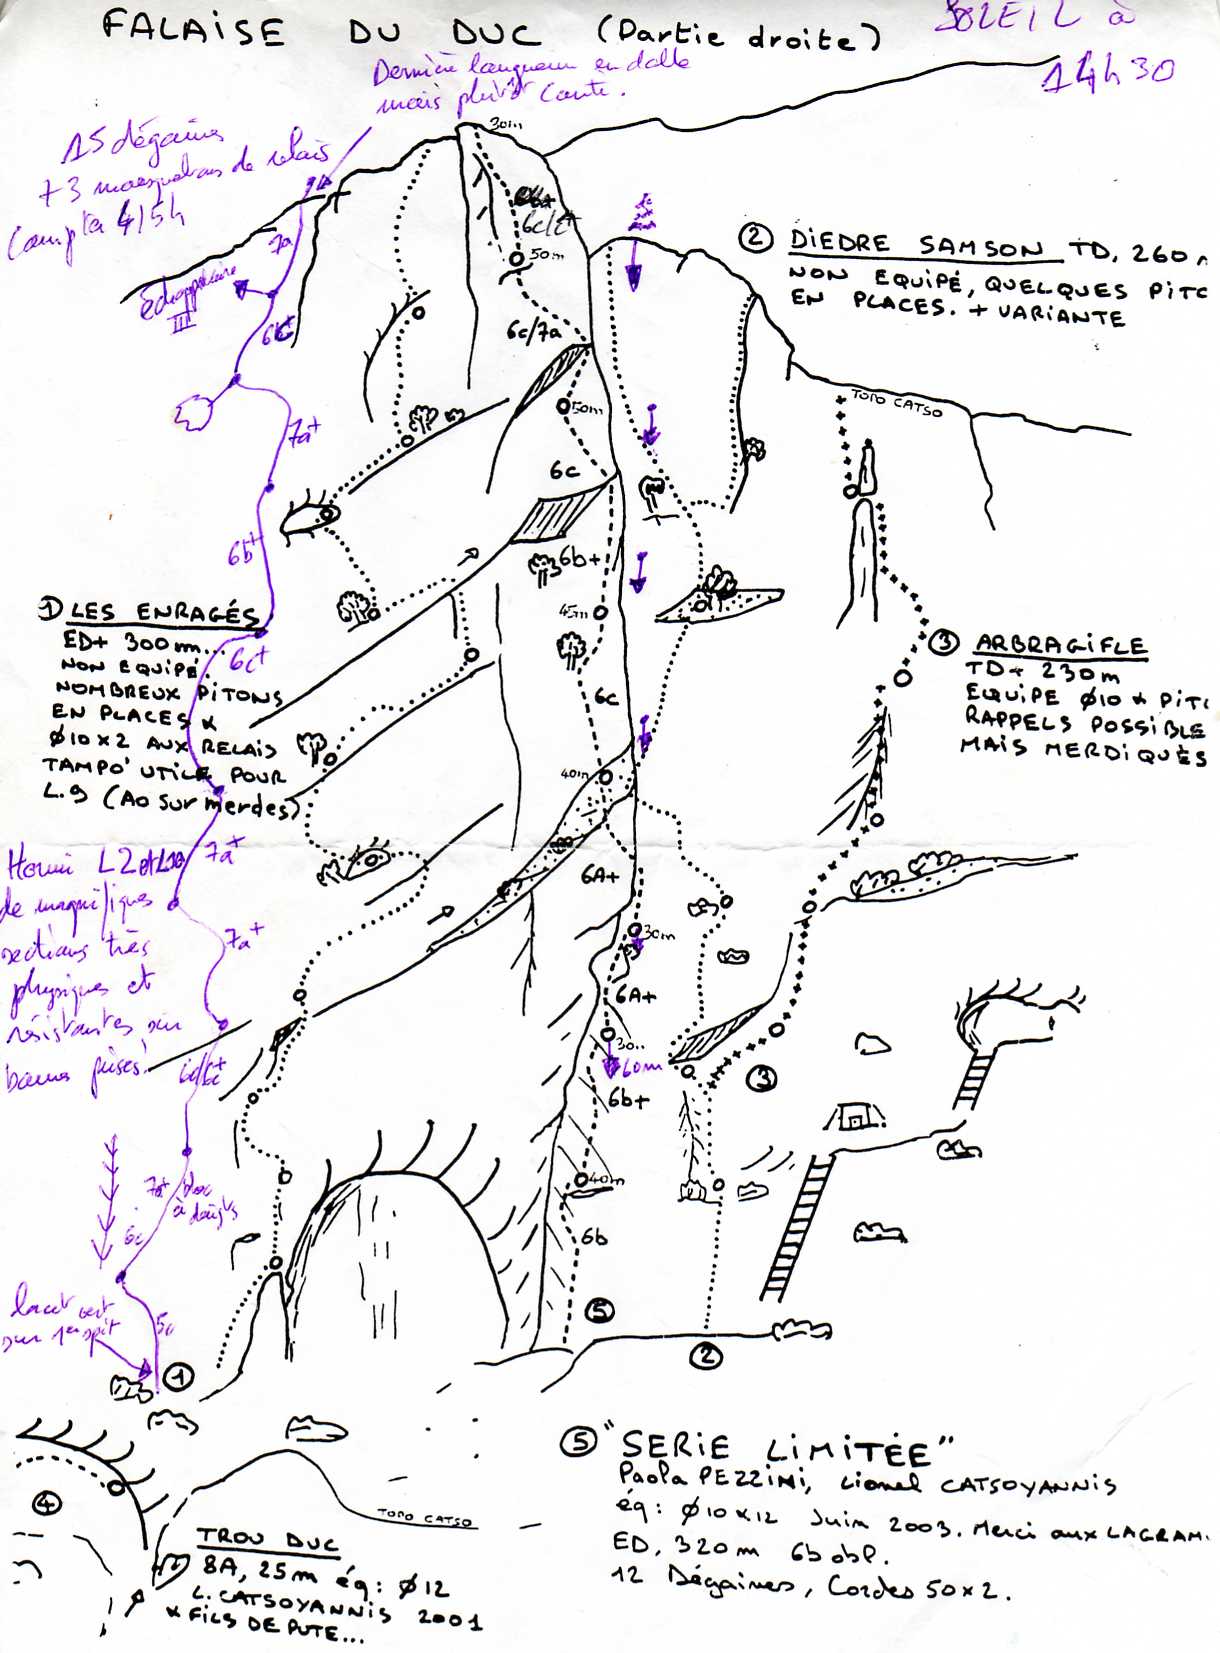 FALAISE DU DUC (Partie droite)
SOLEIL à
14h30
Dernière longueur en dalle
mais plutôt courte.
15 dégaines
+ 3 mousquetons de relais
4/5h
30m
6b+
6c/c+
50m
7a
Échappatoire
III
6c/7a
50m
7a+
6c
6b+
6b+
45m
② DIEDRE SAMSON TD, 260
NON EQUIPÉ, QUELQUES PITO
EN PLACES. + VARIANTE
TOPO CATSO
① LES ENRAGÉS
ED+ 300m...
NON EQUIPÉ
NOMBREUX PITONS
EN PLACES &
Ø10x2 AUX RELAIS
TAMPO' UTILE POUR
L.9 (A0 sur merdes)
6c+
6c
40m
③ ARBRAGIFLE
TD+ 230m
EQUIPE Ø10 & PITO
RAPPELS POSSIBLE
MAIS MERDIQUES
7a+
L2 et L10
de magnifiques
sections très
physiques et
résistantes sur
bonnes prises!
7a+
6A+
30m
6A+
30m
60m
6b+
③
40m
7a+ bloc
à doigts
6c
6b
⑤
lacet vert
sur 1er spit
5c
①
②
④
TOPO CATSO
TROU DUC
8A, 25m éq: Ø12
L. CATSOYANNIS 2001
& FILS DE PUTE...
⑤ "SERIE LIMITÉE"
Paola PEZZINI, Lionel CATSOYANNIS
éq: Ø10x12 Juin 2003. Merci aux LAGRAM.
ED, 320m 6b obl.
12 Dégaines, Cordes 50x2.